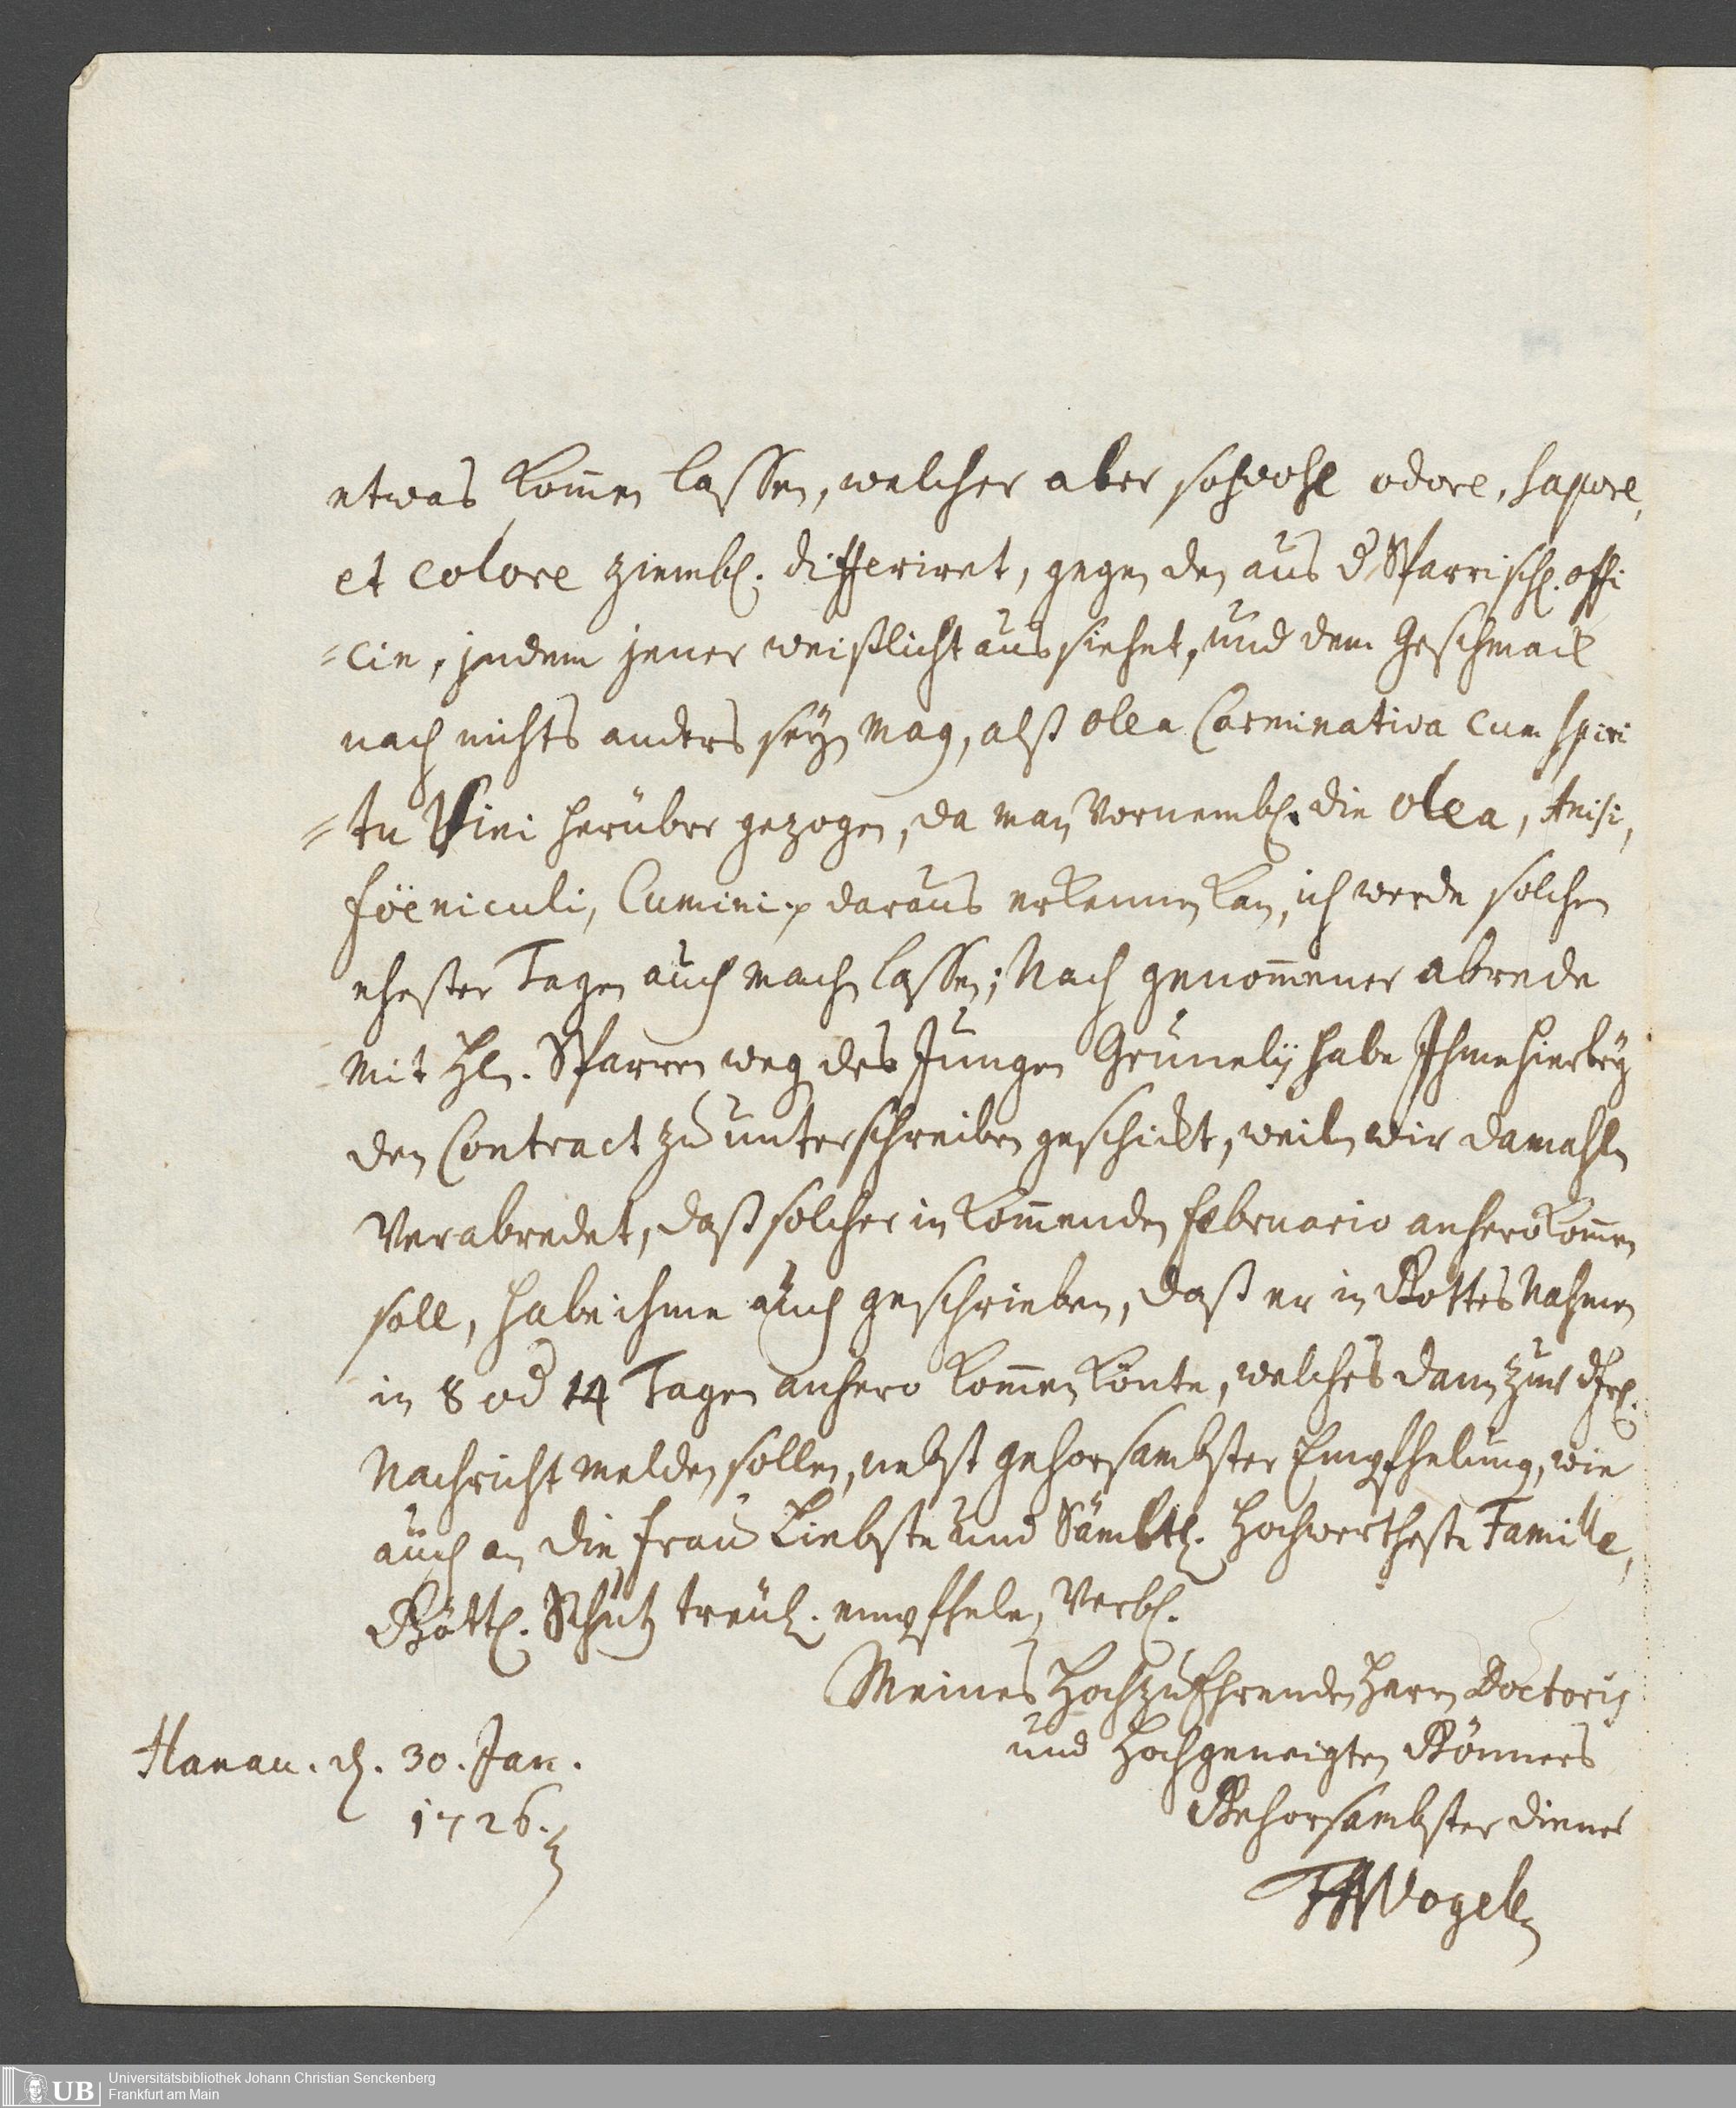 etwas kom̅en lassen, welcher aber sohwohl odore, sapore,
et colore ziembl. differiret, gegen den aus d. Sparrisch. offi
=cin, indem jener weißlicht aussiehet, und dem Geschmack
nach nichts anders seyn mag, alß olea Carminativa cum spiri
=tu Vini herüber gezogen, da man vornembl. die olea, Anisi,
föeniculi, Cumini p daraus erkennen kan, ich werde solchen
ehester Tagen auch machen lassen; Nach genom̅ener abrede
mit Hln. Sparren weg. des Jungen Grünelij habe Ihme hierbey
den Contract zu unterschreiben geschickt, weiln wir damahln
verabredet, daß solcher in kom̅enden februario anhero kom̅en
soll, habe ihme auch geschrieben, daß er in Gottes Nahmen
in 8 od 14 Tagen anhero kom̅en könte, welches dann zur
Nachricht melden sollen, nebst gehorsambster Empfhelung, wie
auch an die frau Liebste und Sämbtl. Hochwertheste Famille,
Göttl. Schutz treül. empfhele, Verbl.
Meines Hochzu Ehrenden Herrn Doctoris
und Hochgeneigten Gönners
Gehorsambster diener
Vogel
Hanau. d. 30. Jan.
1726.
Universitätsbibliothek Johann Christian Senckenberg
UB Frankfurt am Main